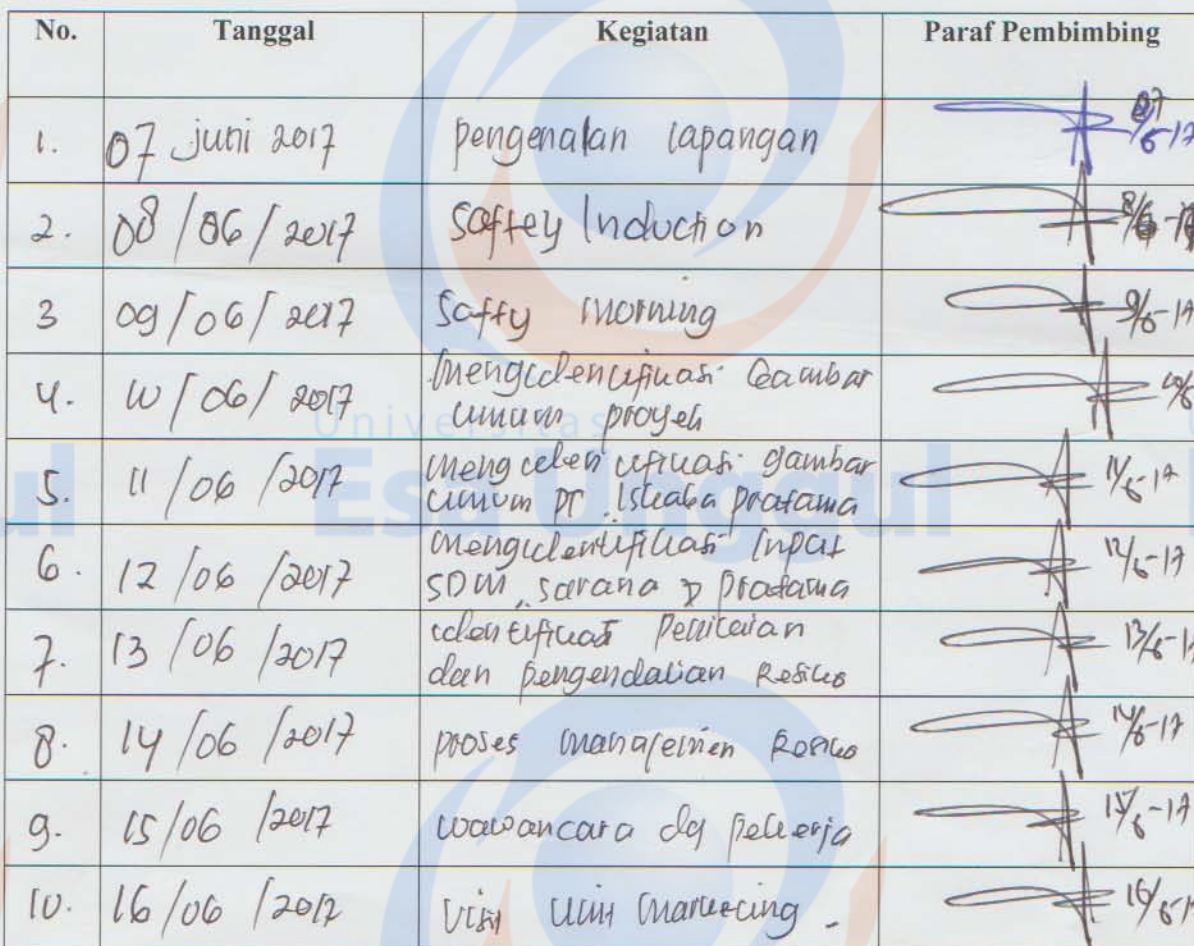 No. Tanggal Kegiatan Paraf Pembimbing
1. 07 juni 2017 pengenalan lapangan 07/6-17
2. 08/06/2017 Saftey Induction 8/6-17
3 09/06/2017 Saffy morning 9/6-17
4. 10/06/2017 mengidentifikasi Gambar 10/6
umum proyek
5. 11/06/2017 mengidentifikasi gambar 11/6-17
umum PT. Iskaba pratama
6. 12/06/2017 mengidentifikasi Input 12/6-17
SDM, sarana & Pratama
7. 13/06/2017 identifikasi Penilaian 13/6-17
dan pengendalian Resiko
8. 14/06/2017 proses manajemen Resiko 14/6-17
9. 15/06/2017 wawancara dg pekerja 15/6-17
10. 16/06/2017 Visit Unit 16/6-1
Universitas
Esa Unggul
ul